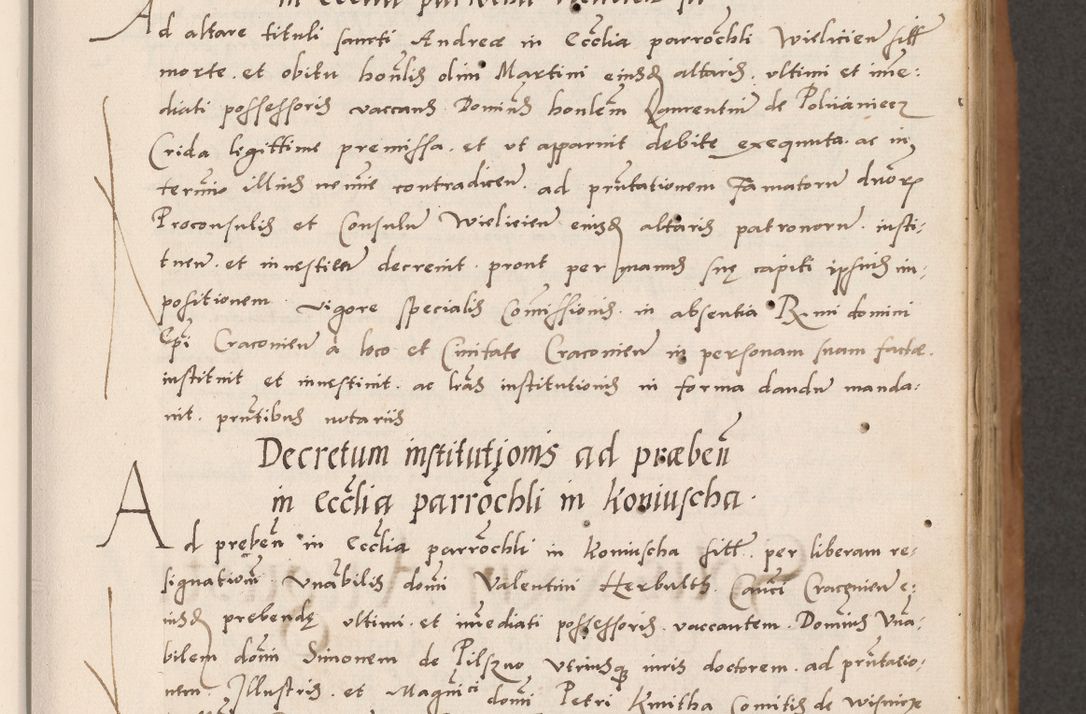 Ad altare tituli sancti Andreæ in Eccłia parrochłi Wieliciensi sitū
morte et obitu honłis olim Martini eiusđ altaris ultimi et imme:
diati possessoris vaccans Dominus honłem Laurentiū de Polnaniecz
Crida legittime premissa et ut apparuit debite exequuta ac in
termino illius nemine contradicen. ad pręntationem Famatorū dnorū
Proconsulis et Consulū Wieliciēn eiusđ altaris patronorū insti:
tuen. et investien decrevit prout per manus suę capiti ipsius im:
positionem vigore specialis Comissionis in absentia R.mi domini
Epi Cracovien a loco et Civitate Cracovien in personam suam factæ
instituit et investivit ac lr̄as institutionis in forma dandū manda:
vit pręntibus notariis
Decretum institutionis ad præbeñ
in Eccłia parrochłi in Koniuscha
Ad pręben in Eccłia parrochłi in Koniuscha sitā per liberam re:
signationē Vnabilis domi Valentini Herbulth Canci Cracovien e:
iusđ prebendę ultimi et imediati possessoris vaccantem Dominus Vna:
bilem domi Simonem de Pilszno utriusq iuris doctorem ad pręntatio:
nem Illustris et Magnici domi Petri Kmitha Comitis de Wisnicze